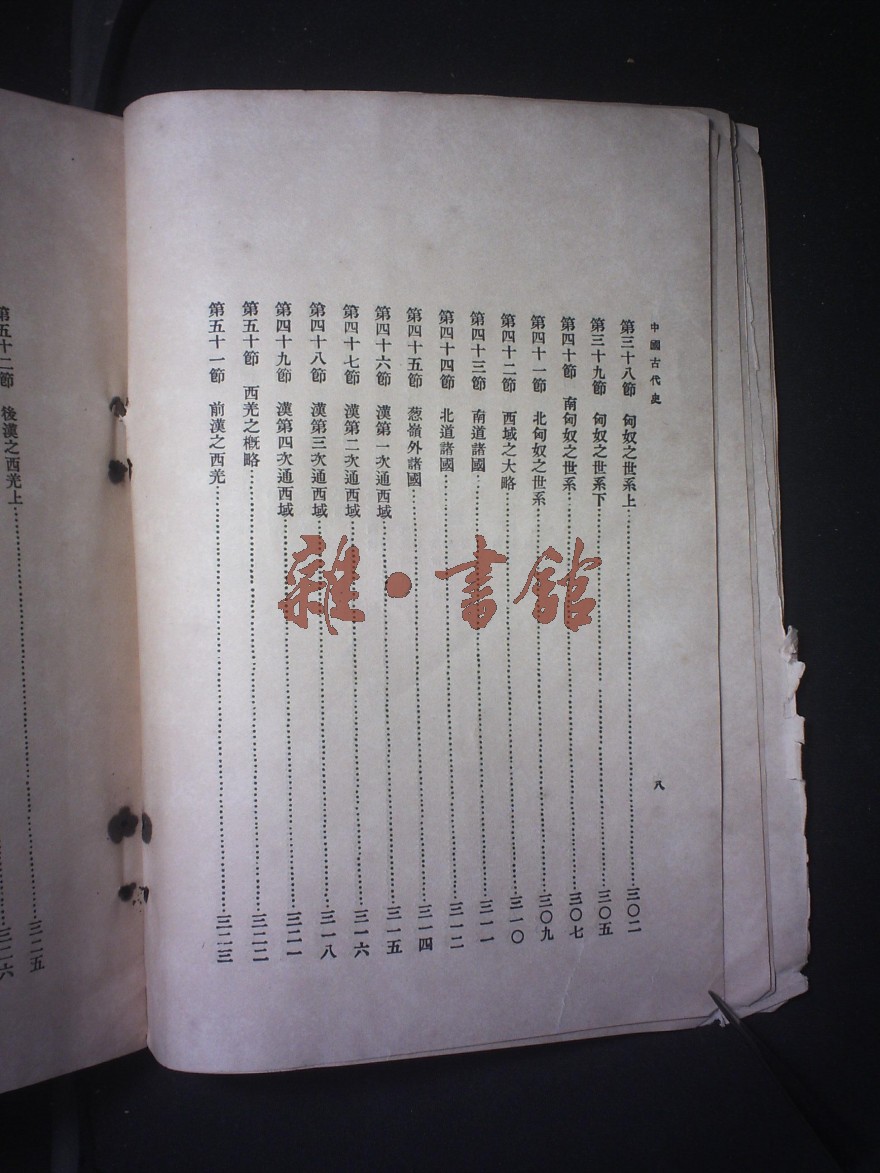 中國古代史
八
第三十八節　匈奴之世系上……三〇二
第三十九節　匈奴之世系下……三〇五
第四十節　南匈奴之世系……三〇七
第四十一節　北匈奴之世系……三〇九
第四十二節　西域之大略……三一〇
第四十三節　南道諸國……三一一
第四十四節　北道諸國……三一二
第四十五節　葱嶺外諸國……三一四
第四十六節　漢第一次通西域……三一五
第四十七節　漢第二次通西域……三一六
第四十八節　漢第三次通西域……三一八
第四十九節　漢第四次通西域……三二一
第五十節　西羌之概略……三二二
第五十一節　前漢之西羌……三二三
第五十二節　後漢之西羌上……三二五
三二六
雜·書館